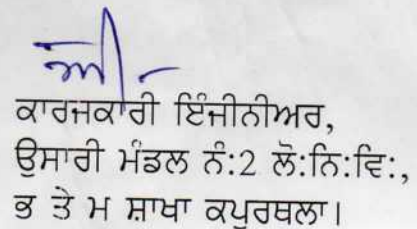 ਕਾਰਜਕਾਰੀ ਇੰਜੀਨੀਅਰ,
ਉਸਾਰੀ ਮੰਡਲ ਨੰ:2 ਲੋ:ਨਿ:ਵਿ:,
ਭ ਤੇ ਮ ਸ਼ਾਖਾ ਕਪੂਰਥਲਾ।